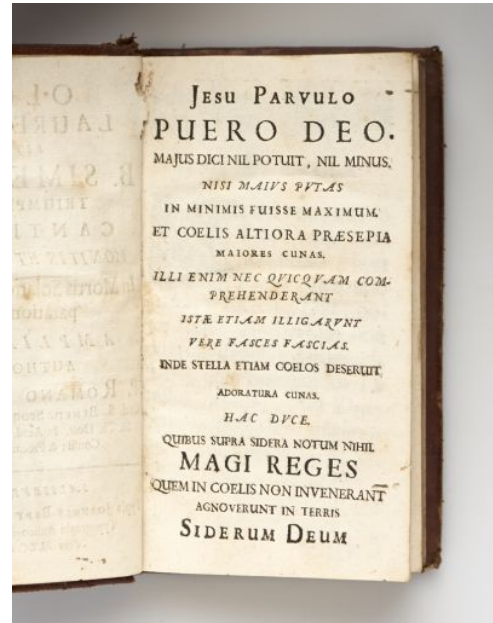 JESU PARVULO
PUERO DEO.
MAJUS DICI NIL POTUIT, NIL MINUS.
NISI MAIVS PVTAS
IN MINIMIS FUISSE MAXIMUM.
ET COELIS ALTIORA PRÆSEPIA
MAIORES CUNAS.
ILLI ENIM NEC QVICQVAM COM-
PREHENDERANT
ISTÆ ETIAM ILLIGARVNT
VERE FASCES FASCIAS.
INDE STELLA ETIAM COELOS DESERUIT
ADORATURA CUNAS.
HAC DVCE.
QUIBUS SUPRA SIDERA NOTUM NIHIL
MAGI REGES
QUEM IN COELIS NON INVENERANT
AGNOVERUNT IN TERRIS
SIDERUM DEUM